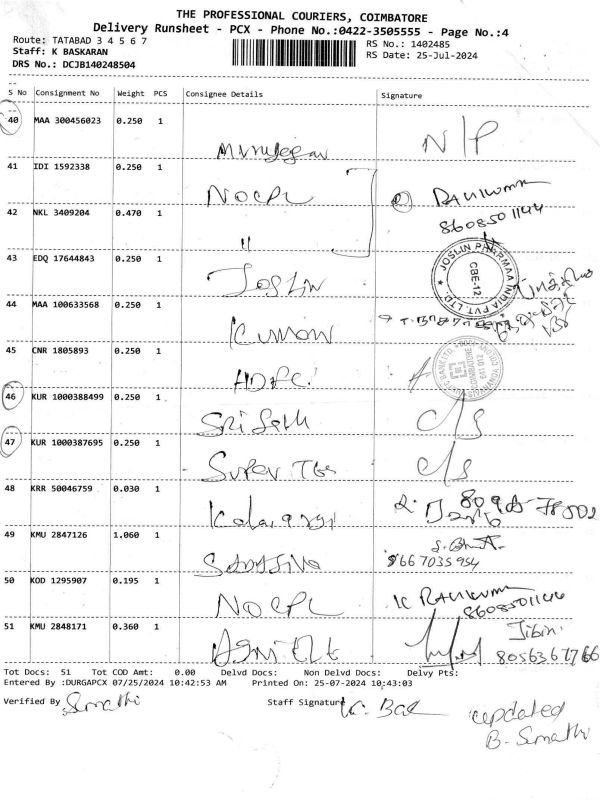 THE PROFESSIONAL COURIERS, COIMBATORE
Delivery Runsheet - PCX - Phone No.:0422-3505555 - Page No.:4
Route: TATABAD 3 4 5 6 7 RS No.: 1402485
Staff: K BASKARAN RS Date: 25-Jul-2024
DRS No.: DCJB140248504
S No Consignment No Weight PCS Consignee Details Signature
40 MAA 300456023 0.250 1 N/P
41 IDI 1592338 0.250 1 NOCPL RAVIKUMAR
8608501144
42 NKL 3409204 0.470 1 "
43 EDQ 17644843 0.250 1 Joslin JOSLIN PHARMAA INDIA PVT. LTD CBE-12
44 MAA 100633568 0.250 1 Kumar
45 CNR 1805893 0.250 1 HDFC COIMBATORE 641 012
46 KUR 1000388499 0.250 1 Sri C/S
47 KUR 1000387695 0.250 1 Super C/S
48 KRR 50046759 0.030 1
49 KMU 2847126 1.060 1
50 KOD 1295907 0.195 1 NOCPL K RAVIKUMAR
8608501144
51 KMU 2848171 0.360 1 Jibin
8056367766
Tot Docs: 51 Tot COD Amt: 0.00 Delvd Docs: Non Delvd Docs: Delvy Pts:
Entered By :DURGAPCX 07/25/2024 10:42:53 AM Printed On: 25-07-2024 10:43:03
Verified By Smathi Staff Signature K. Bas
updated
B. Smathi